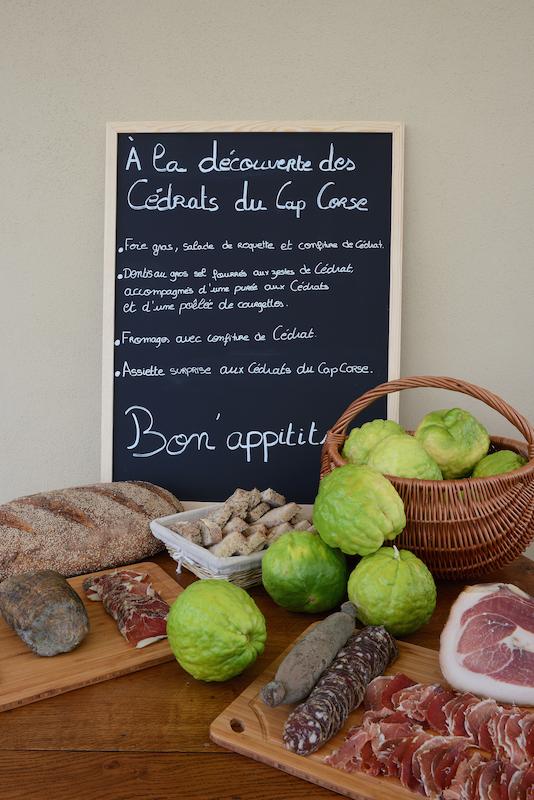 À la découverte des
Cédrats du Cap Corse
• Foie gras, salade de roquette et confiture de Cédrat.
• Dentis au gros sel fourrés aux zestes de Cédrat,
accompagnés d'une purée aux Cédrats
et d'une poêlée de courgettes.
• Fromages avec confiture de Cédrat.
• Assiette SURPRISE aux Cédrats du Cap Corse.
Bon' appitit